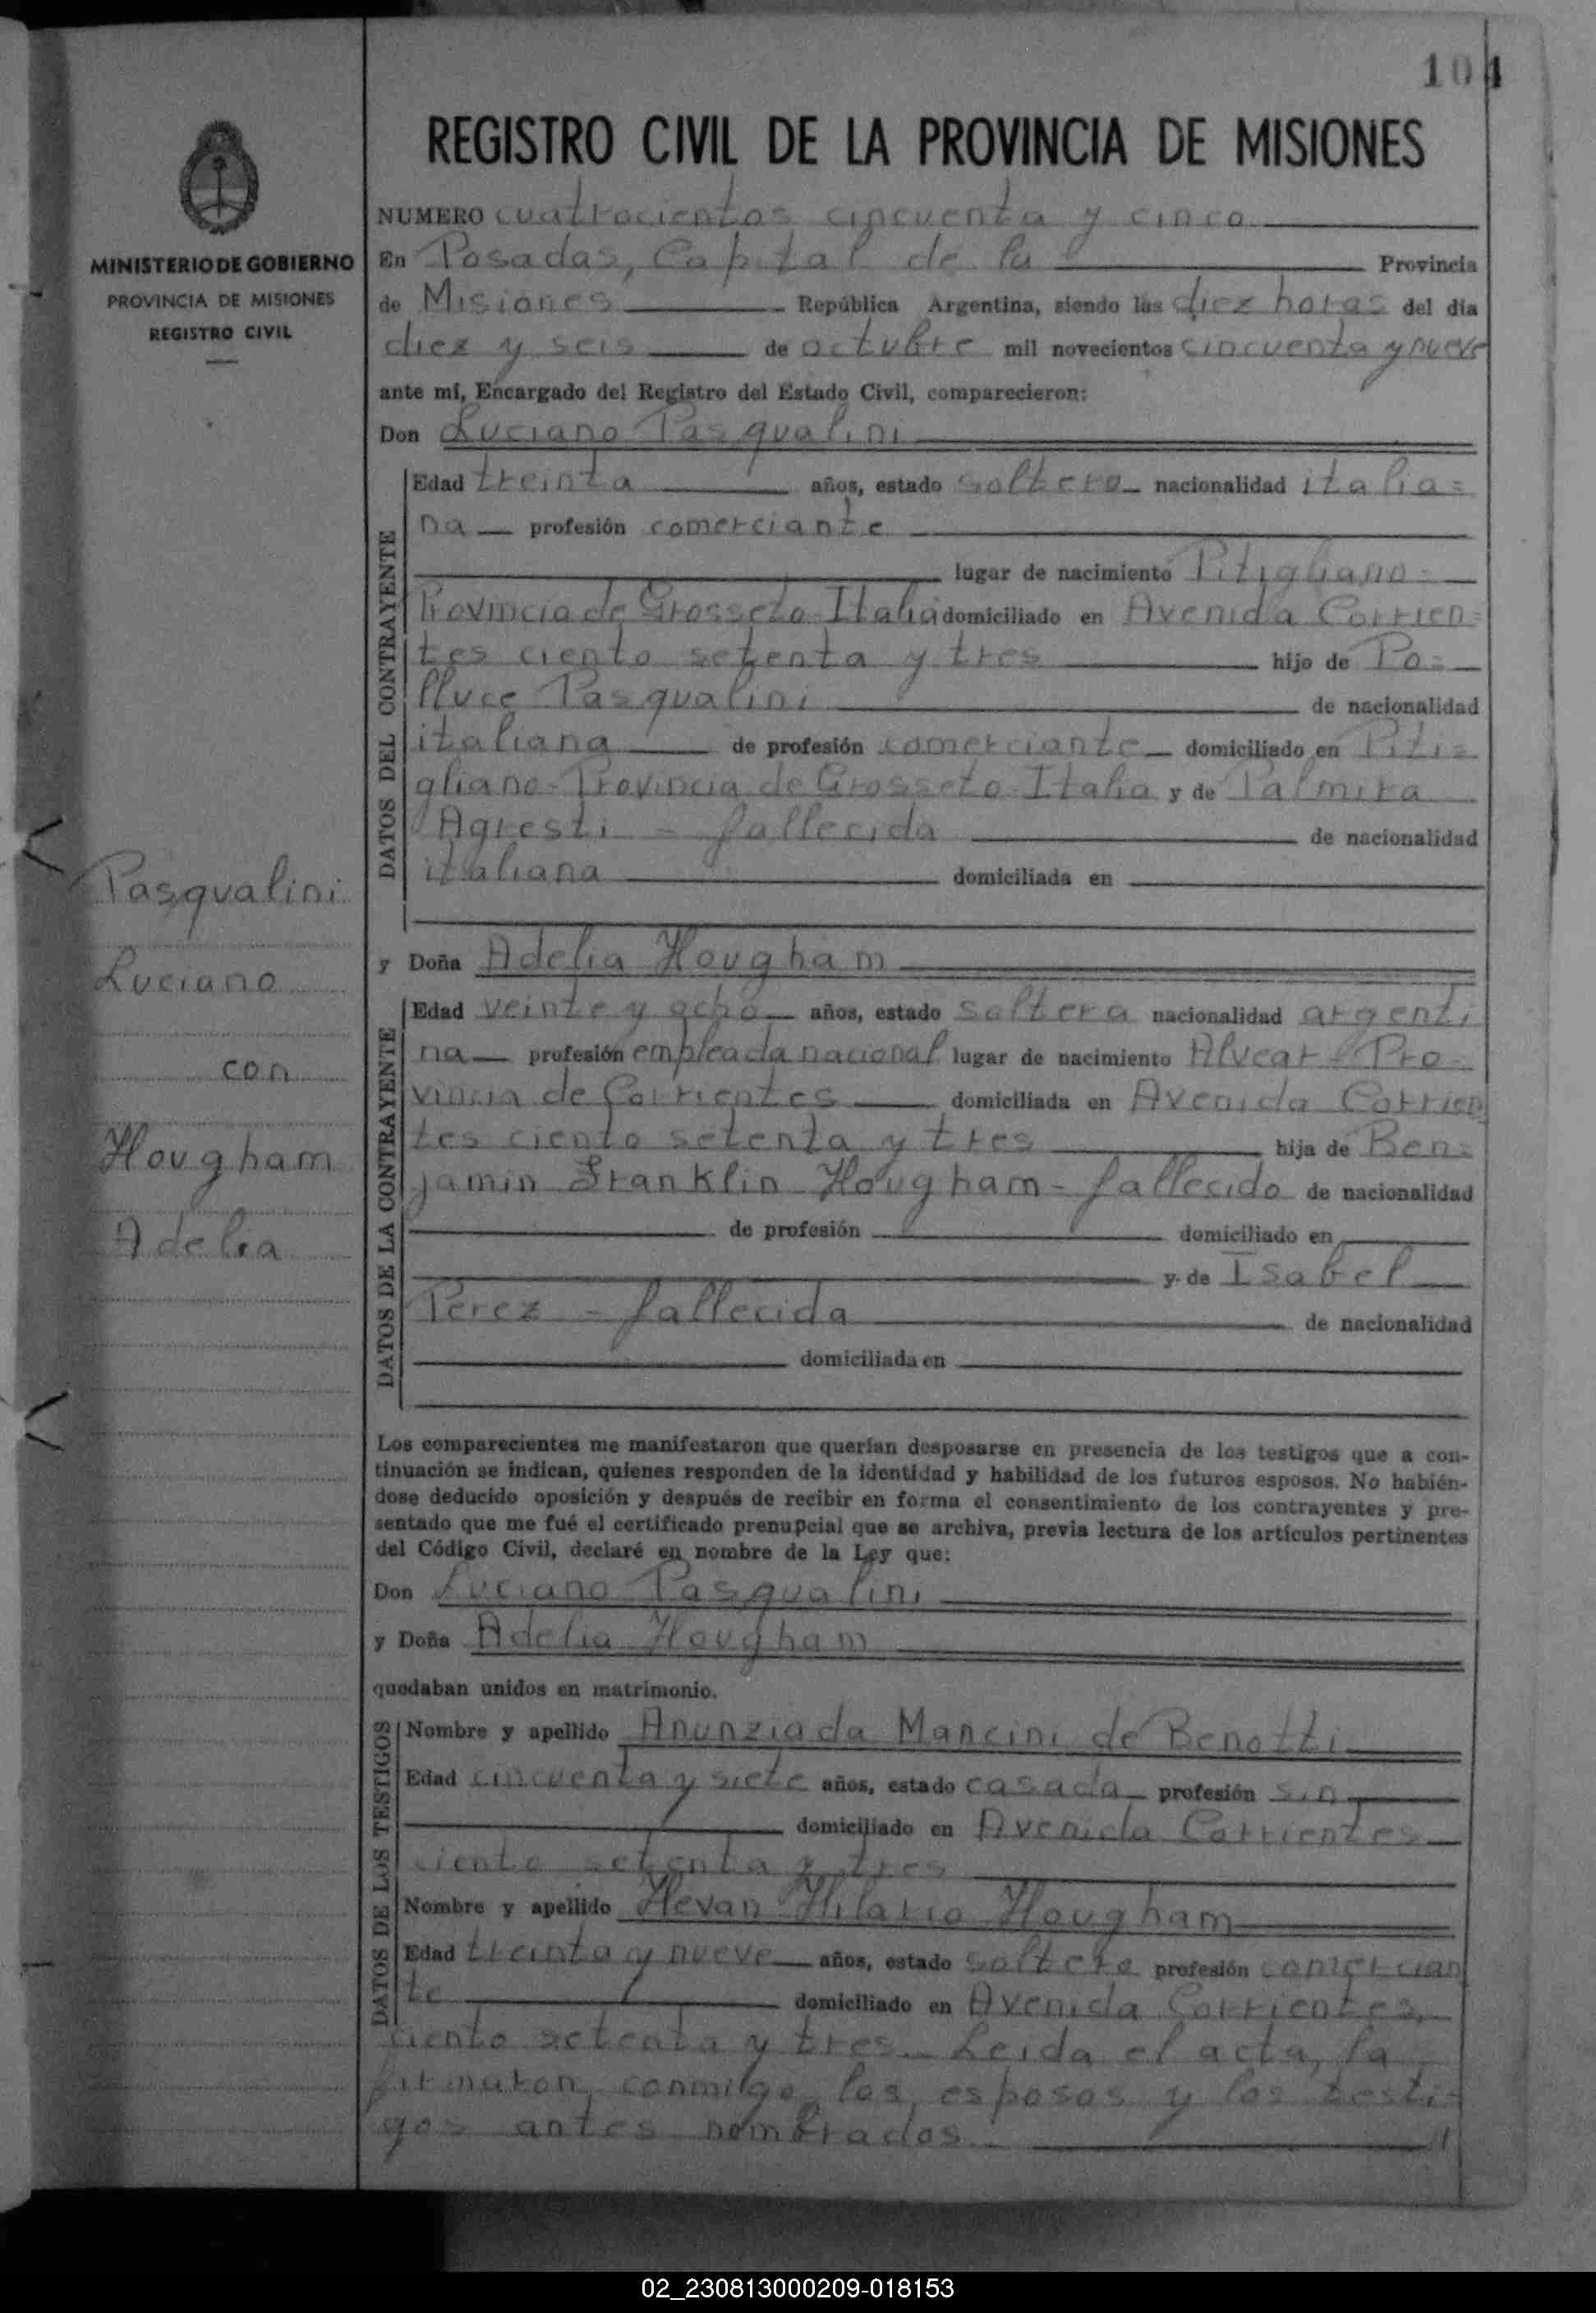 104
REGISTRO CIVIL DE LA PROVINCIA DE MISIONES
MINISTERIO DE GOBIERNO
PROVINCIA DE MISIONES
REGISTRO CIVIL
Pasqualini
Luciano
con
Hougham
Adelia
NUMERO cuatrocientos cincuenta y cinco
En Posadas, Capital de la Provincia
de Misiones República Argentina, siendo las diez horas del día
diez y seis de octubre mil novecientos cincuenta y nueve
ante mí, Encargado del Registro del Estado Civil, comparecieron:
Don Luciano Pasqualini
DATOS DEL CONTRAYENTE
Edad treinta años, estado soltero nacionalidad italia=
na profesión comerciante
lugar de nacimiento Pitigliano-
Provincia de Grosseto-Italia domiciliado en Avenida Corrien=
tes ciento setenta y tres hijo de Po=
lluce Pasqualini de nacionalidad
italiana de profesión comerciante domiciliado en Piti=
gliano-Provincia de Grosseto-Italia y de Palmira
Agresti - fallecida de nacionalidad
italiana domiciliada en
y Doña Adelia Hougham
DATOS DE LA CONTRAYENTE
Edad veinte y ocho años, estado soltera nacionalidad argenti
na profesión empleada nacional lugar de nacimiento Alvear-Pro-
vincia de Corrientes domiciliada en Avenida Corrien
tes ciento setenta y tres hija de Ben=
jamin Franklin Hougham-fallecido de nacionalidad
de profesión domiciliado en
y de Isabel
Perez - fallecida de nacionalidad
domiciliada en
Los comparecientes me manifestaron que querían desposarse en presencia de los testigos que a con-
tinuación se indican, quienes responden de la identidad y habilidad de los futuros esposos. No habién-
dose deducido oposición y después de recibir en forma el consentimiento de los contrayentes y pre-
sentado que me fué el certificado prenupcial que se archiva, previa lectura de los artículos pertinentes
del Código Civil, declaré en nombre de la Ley que:
Don Luciano Pasqualini
y Doña Adelia Hougham
quedaban unidos en matrimonio.
DATOS DE LOS TESTIGOS
Nombre y apellido Anunziada Mancini de Benotti
Edad cincuenta y siete años, estado casada profesión sin
domiciliado en Avenida Corrientes
ciento setenta y tres
Nombre y apellido Hevan Hilario Hougham
Edad treinta y nueve años, estado soltero profesión comercian
te domiciliado en Avenida Corrientes
ciento setenta y tres. Leida el acta, la
firmaron conmigo los esposos y los testi-
gos antes nombrados
02_230813000209-018153